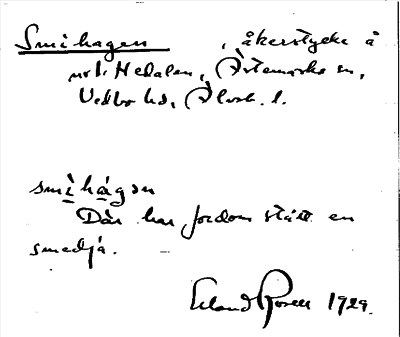 Smihagen, åkerstycke å
nr 1. Hedalen, Ärtemarks sn,
Vedbo hd, Älvsb. l.
smìhàgən
Där har fordom stått en
smedja.
Erland Rosell 1929.